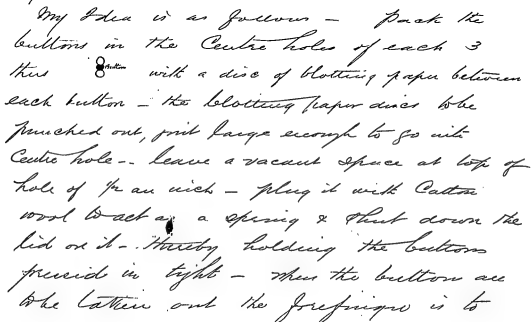 My Idea is as follows — pack the
buttons in the Centre holes of each 3
thus Button with a disc of blotting paper between
each button — the blotting paper discs to be
punched out, just large enough to go into
Centre hole -- leave a vacant space at top of
hole of an inch — plug it with Cotton
wool to act as a spring & shut down the
lid on it — thereby holding the buttons
in tight — when the button are
to be taken out the forefinger is to